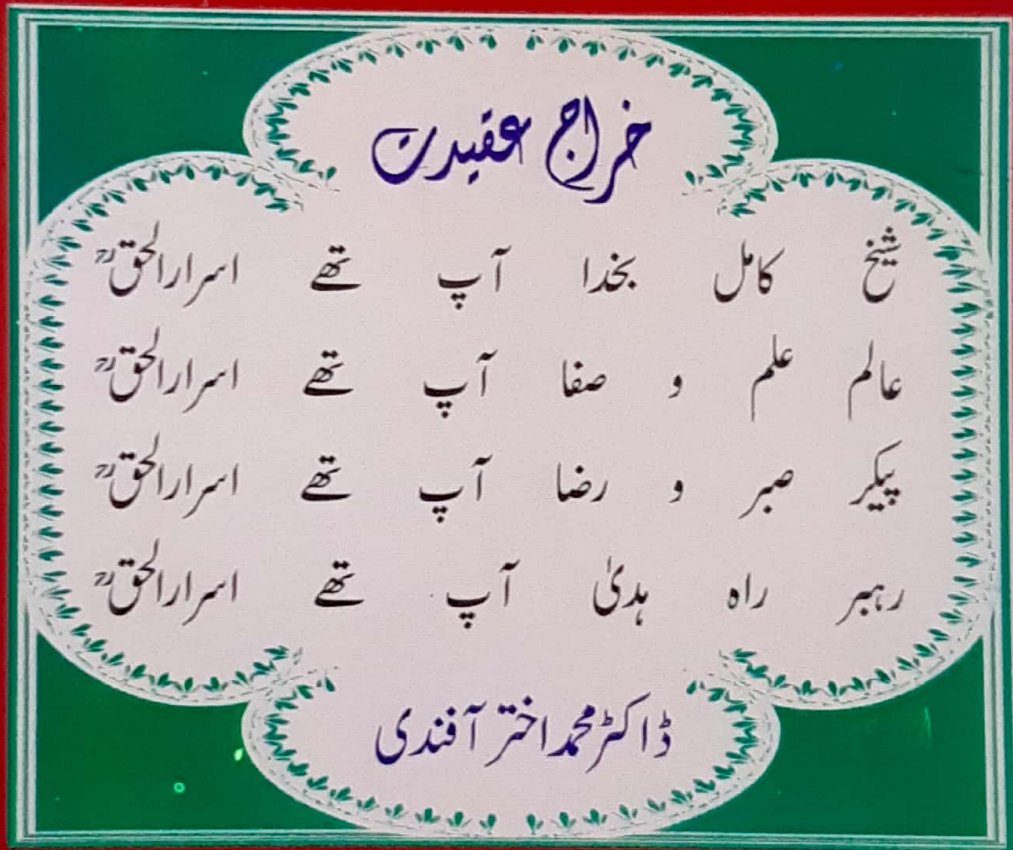 خراج عقیدت
شیخ کامل بخدا آپ تھے اسرارالحقؒ
عالم علم و صفا آپ تھے اسرارالحقؒ
پیکر صبر و رضا آپ تھے اسرارالحقؒ
رہبر راہ ہدیٰ آپ تھے اسرارالحقؒ
ڈاکٹر محمد اختر آفندی